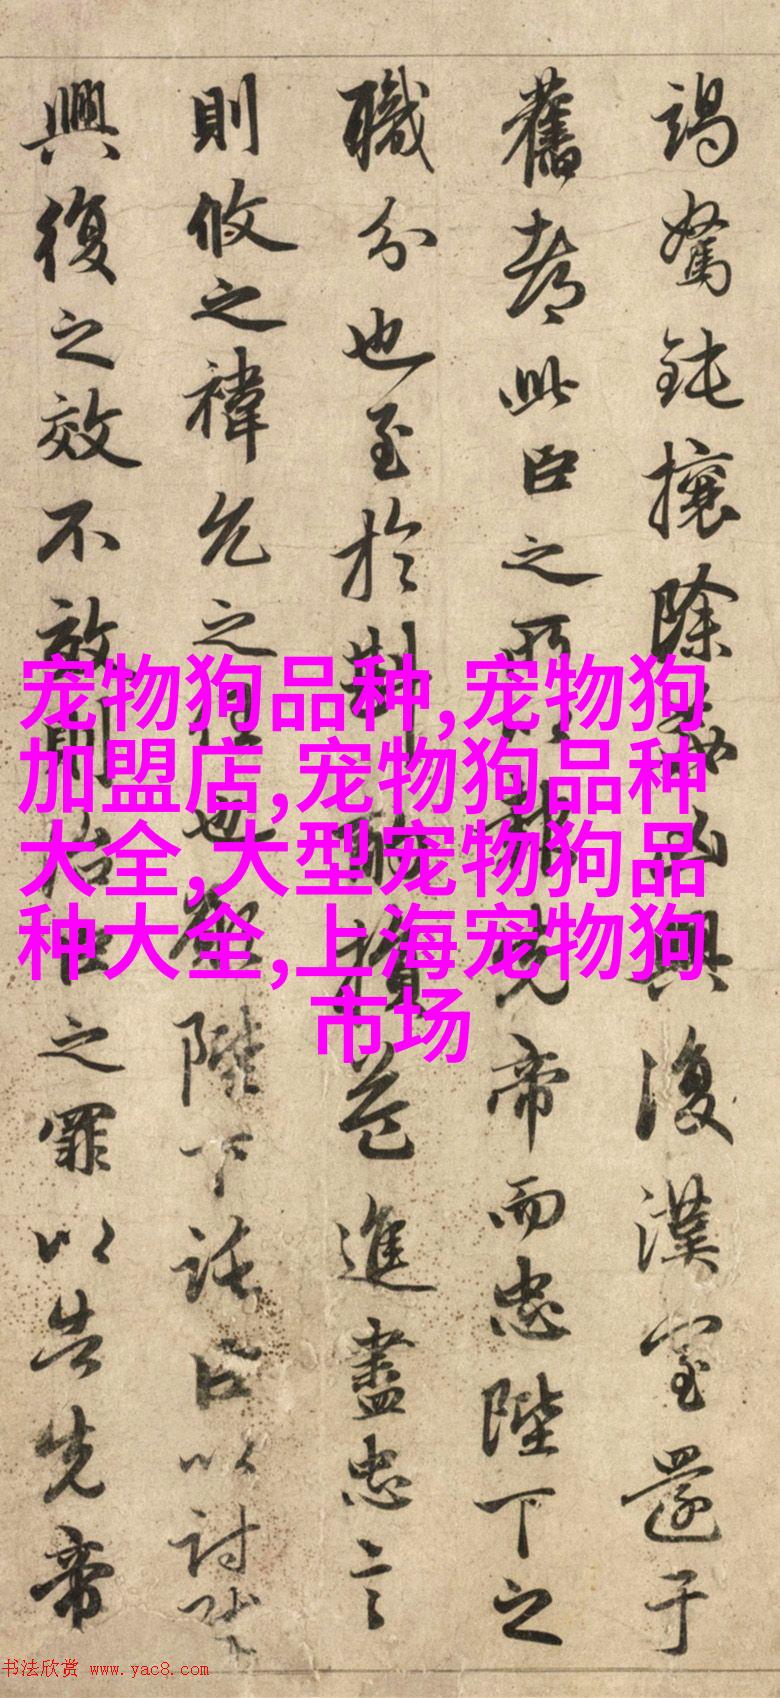 竭駑鈍攘除姦凶興復漢室還于
舊都此臣之所以報先帝而忠陛下之
職分也至於斟酌損益進盡忠言
則攸之禕允之任也願陛下託臣以討賊
興復之效不效則治臣之罪以告先帝
宠物狗品种,宠物狗
加盟店,宠物狗品种
大全,大型宠物狗品
种大全,上海宠物狗
市场
书法欣赏 www.yac8.com